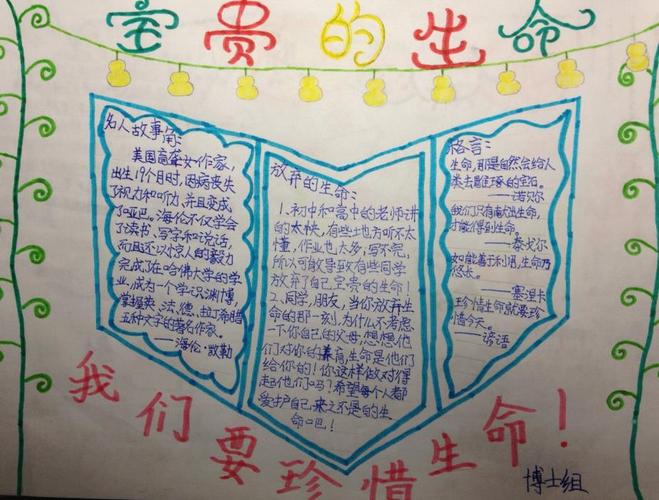 宝贵的生命
名人故事角:
美国盲聋女作家,
出生19个月时,因病丧失
了视力和听力,并且变成
了哑巴。海伦不仅学会
了读书、写字和说话,
而且还以惊人的毅力
完成了在哈佛大学的学
业,成为一个学识渊博,
掌握英、法、德、拉丁、希腊
五种文字的著名作家。
——海伦·凯勒
放弃的生命:
1.初中和高中的老师讲
的太快,有些地方听不太
懂,作业也太多,写不完,
所以可能导致有些同学
放弃了自己宝贵的生命!
2.同学,朋友,当你放弃生
命的那一刻,为什么不考虑
一下你自己的父母,想想他
们对你的养育,生命是他们
给你的!你这样做对得
起他们吗?希望每个人都
爱护自己来之不易的生
命吧!
格言:
生命,那是自然会给人
类去雕琢的宝石。
——诺贝尔
我们只有献出生命,
才能得到生命。
——泰戈尔
如能善于利用,生命乃
悠长。
——塞涅卡
珍惜生命就要珍
惜今天。
——谚语
我们要珍惜生命!
博士组